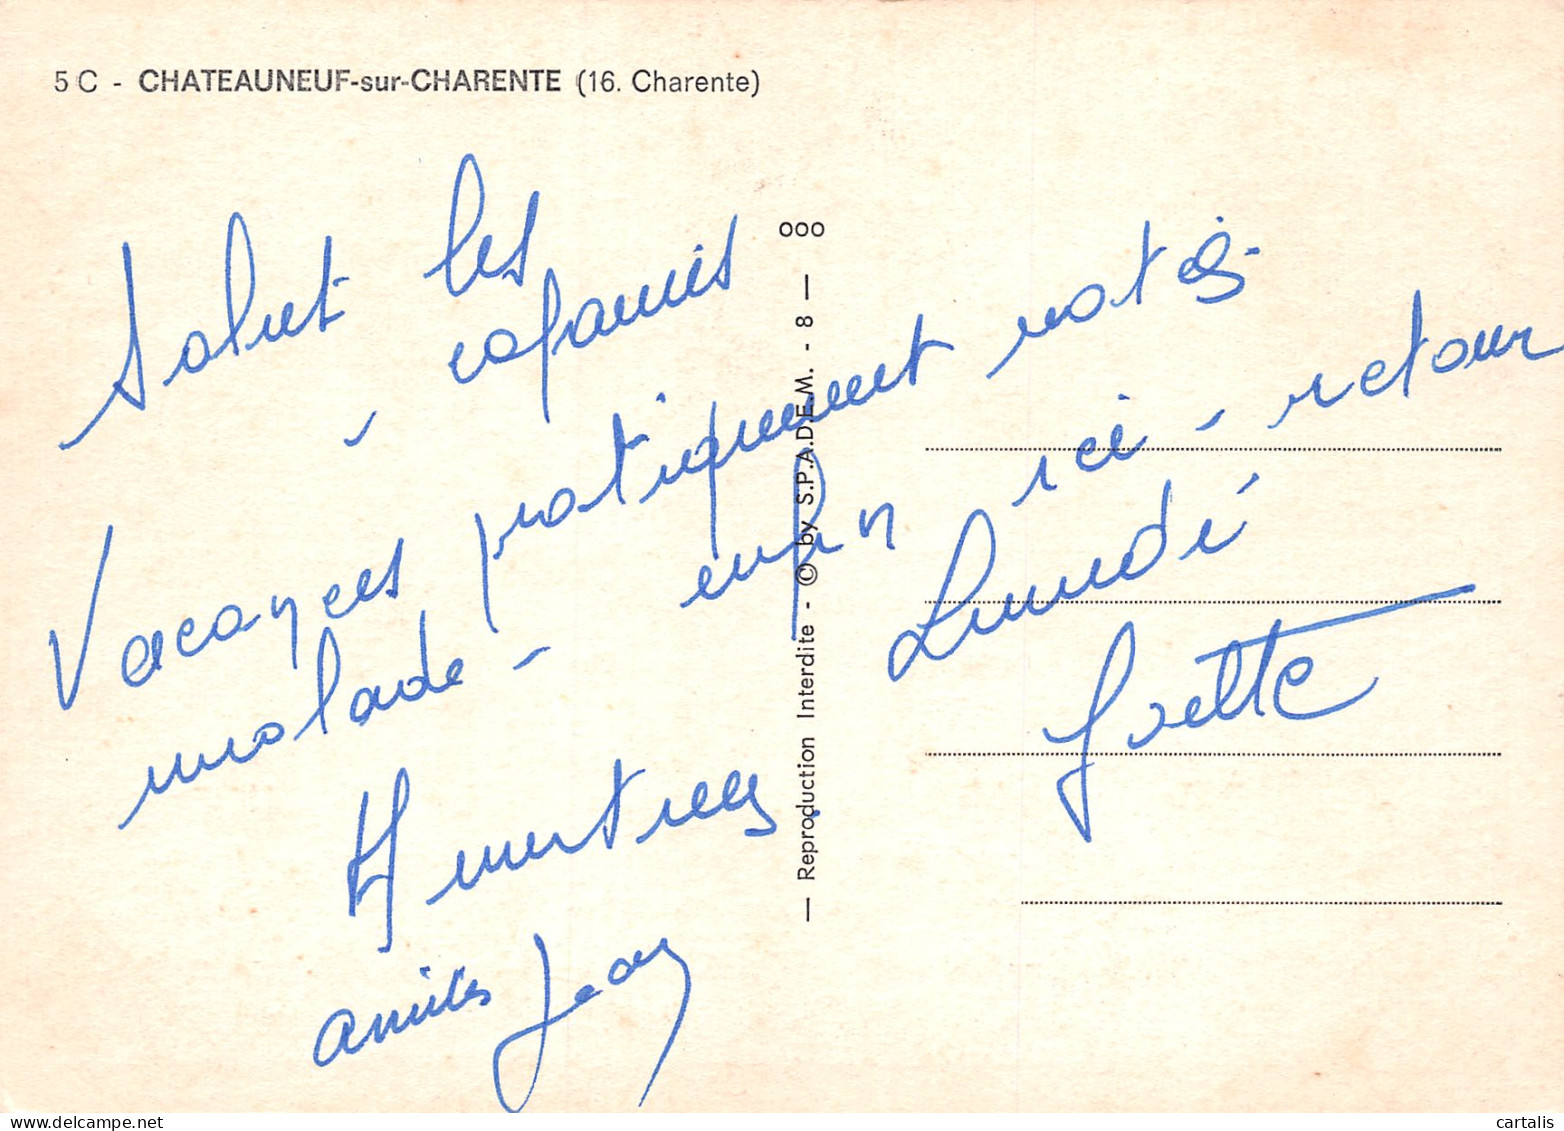 5 C - CHATEAUNEUF-sur-CHARENTE (16. Charente)
Salut les
copains
Vacances pratiquement ratés
malade - enfin ici - retour
Lundi
Yvette
amitiés Jean
— Reproduction Interdite - © by S.P.A.D.E.M. - 8 — 000
delcampe.net
cartalis